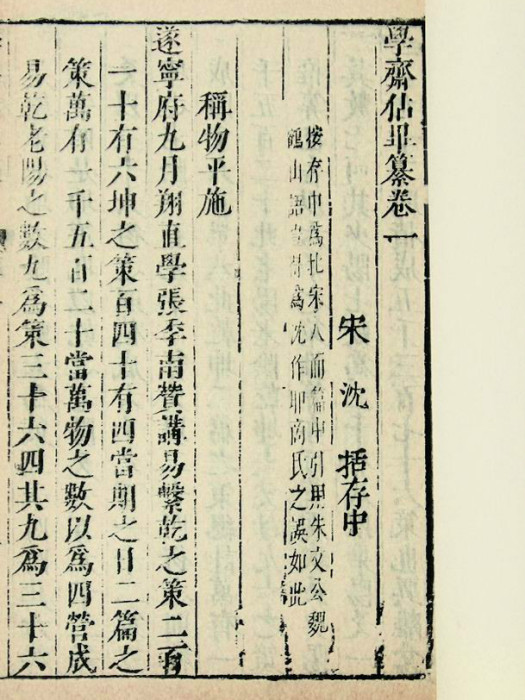 學齋佔畢纂卷一
宋 沈 括存中
按存中為北宋人而編中引用朱文公魏
鶴山語當為沈作即商氏之誤如此
稱物平施
遂寧府九月朔直學張季南贊講易繫乾之策二百
一十有六坤之策百四十有四當期之日二篇之
策萬有一千五百二十當萬物之數以爲四營成
易乾老陽之數九爲策三十六四其九爲三十六